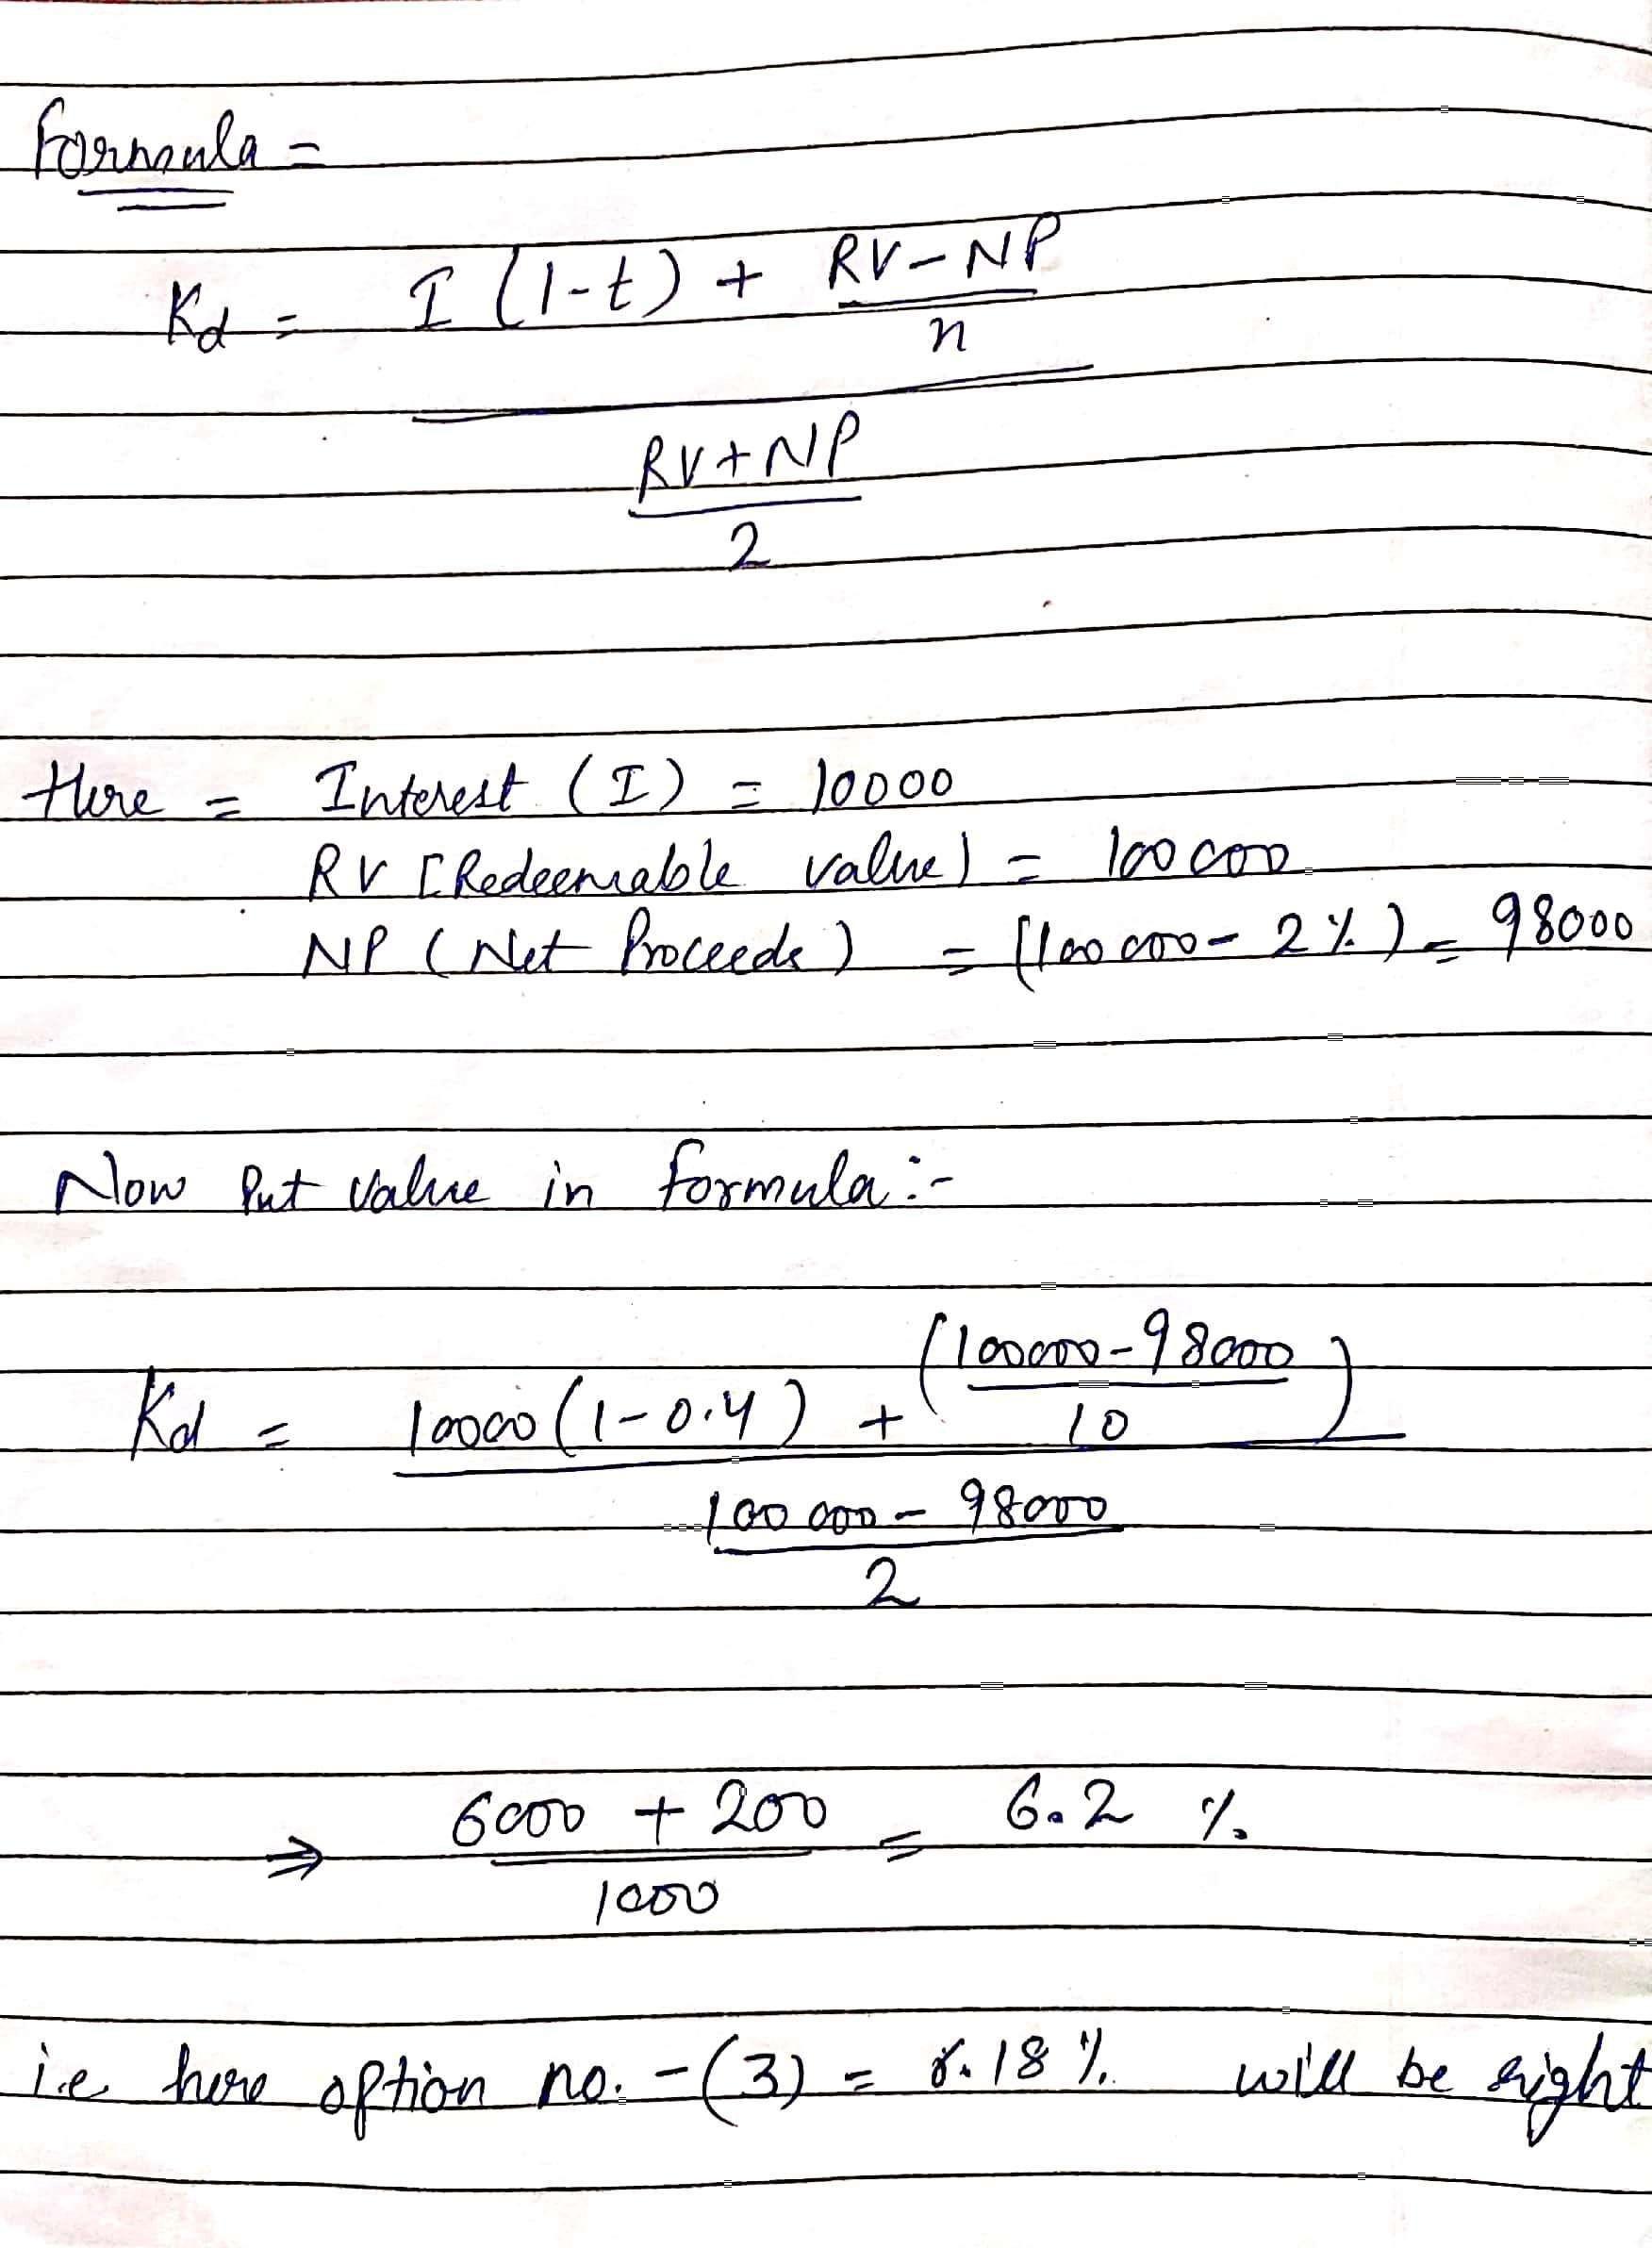 Formula =
Kd = I (1-t) + RV-NP
n
RV+NP
2
Here = Interest (I) = 10000
RV [Redeemable value) = 100000
NP (Net Proceeds) = (100000 - 2%) = 98000
Now Put value in formula :-
Kd = 10000 (1-0.4) + (100000-98000
10 )
100000 - 98000
2
⇒ 6000 + 200 = 6.2 %
1000
i.e here option no. - (3) = 6.18 % will be right